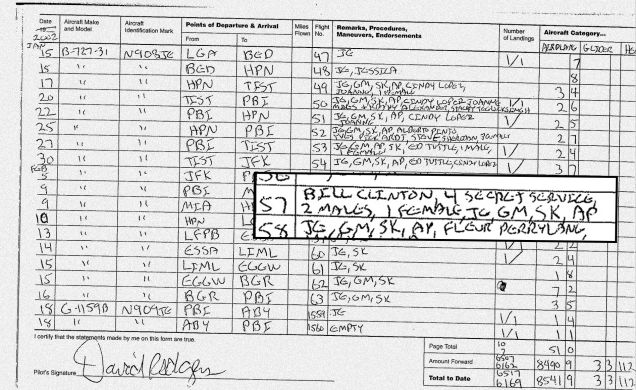 Date Aircraft Make and Model Aircraft Identification Mark Points of Departure & Arrival Miles Flown Flight No. Remarks, Procedures, Maneuvers, Endorsements Number of Landings Aircraft Category...
2002 From To AIRPLANE GLIDER
JAN
15 B-727-31 N908JE LGA BED 47 JE 1/1 7
15 " " BED HPN 48 JE, JESSICA 8
17 " " HPN TIST 49 JE, GM, SK, AP, CINDY LOPEZ, 3 4
JOANNE, 1 FEMALE
20 " " TIST PBI 50 JE, GM, SK, AP, CINDY LOPEZ, JOANNE 1/ 2 6
22 " " PBI HPN 51 JE, GM, SK, AP, CINDY LOPEZ 1/ 2 5
JOANNE
25 " " HPN PBI 52 JE, GM, SK, AP, 2 7
27 " " PBI TIST 53 JE, GM, SK, AP, ED TUTTLE, 1 MALE, 1/ 2 4
30 " " TIST JFK 54 JE, GM, SK, AP, ED TUTTLE, CINDY LOPEZ 1/ 3 7
FEB
5 " " JFK
9 " " PBI
9 " " MIA
10 " " HPN
57 BILL CLINTON, 4 SECRET SERVICE,
2 MALES, 1 FEMALE, JE, GM, SK, AP
58 JE, GM, SK, AP, FLEUR PERRYLANG,
13 " " LFPB
14 " " ESSA LIML 60 JE, SK 1/ 2 2
15 " " LIML EGGW 61 JE, SK 1 8
15 " " EGGW BGR 62 JE, GM, SK 7 2
16 " " BGR PBI 63 JE, GM, SK 3 5
18 G-1159B N909JE PBI ABY 1559 JE 1/1 1 4
18 " " ABY PBI 1560 EMPTY 1/1 1 1
I certify that the statements made by me on this form are true.
Page Total 51 0
Amount Forward 8490 9 3 3 112
Pilot's Signature
Total to Date 6169 8541 9 3 3 112